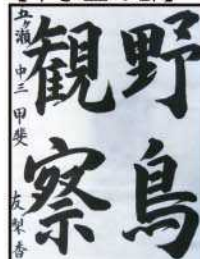 野鳥
観察
五ヶ瀬 中三 甲斐 友梨香